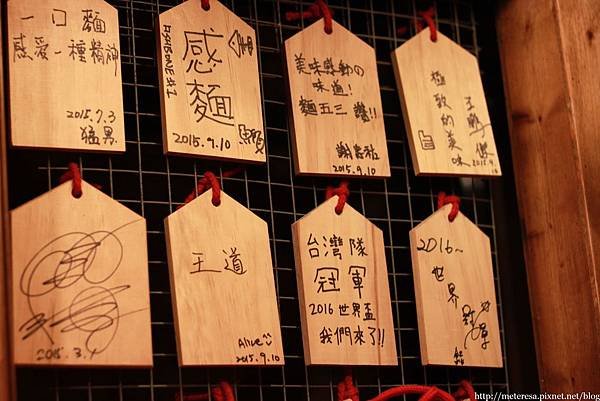 一口麵
感受一種精神
2015.7.3
猛男
感
麵
2015.9.10
美味感動の
味道!
麵五三讚!!
2015.9.10
極致的美味
2015.9.10
2015.3.4
王道
Alive
2015.9.10
台灣隊
冠軍
2016 世界盃
我們來了!!
2016~
世界
冠軍
http://meteresa.pixnet.net/blog